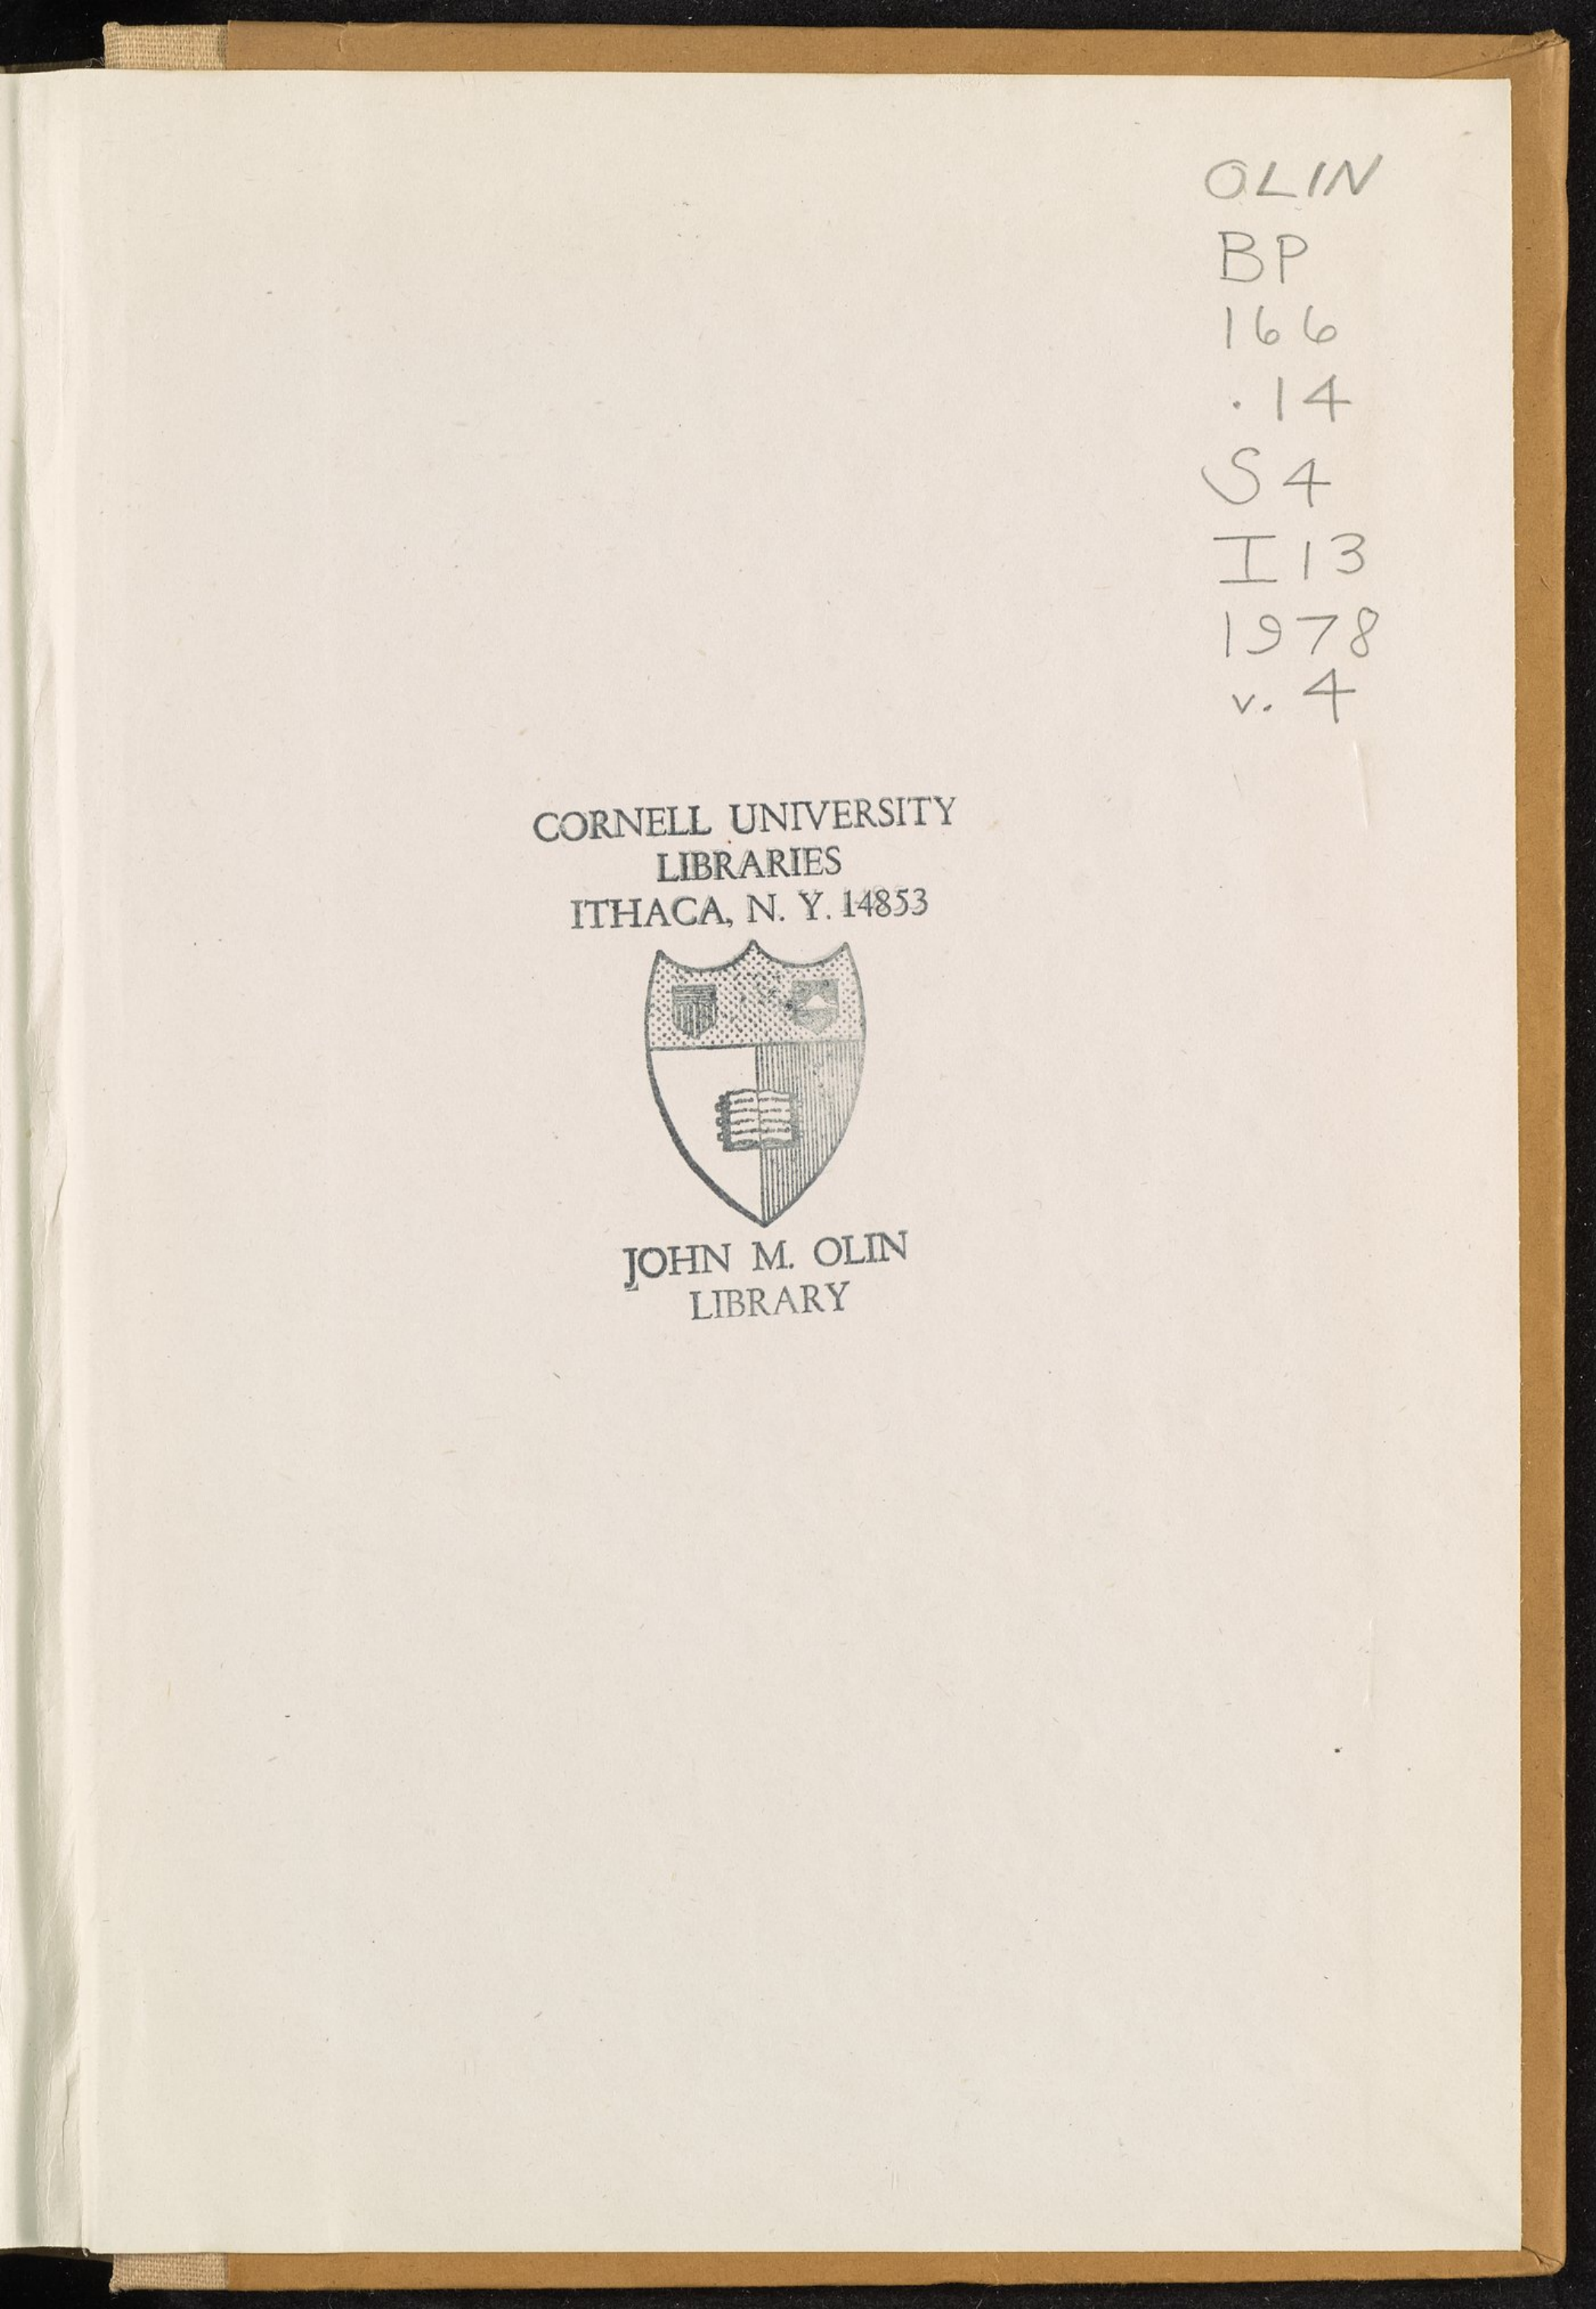 OLIN
BP
166
.14
S4
I13
1978
v. 4
CORNELL UNIVERSITY
LIBRARIES
ITHACA, N. Y. 14853
JOHN M. OLIN
LIBRARY